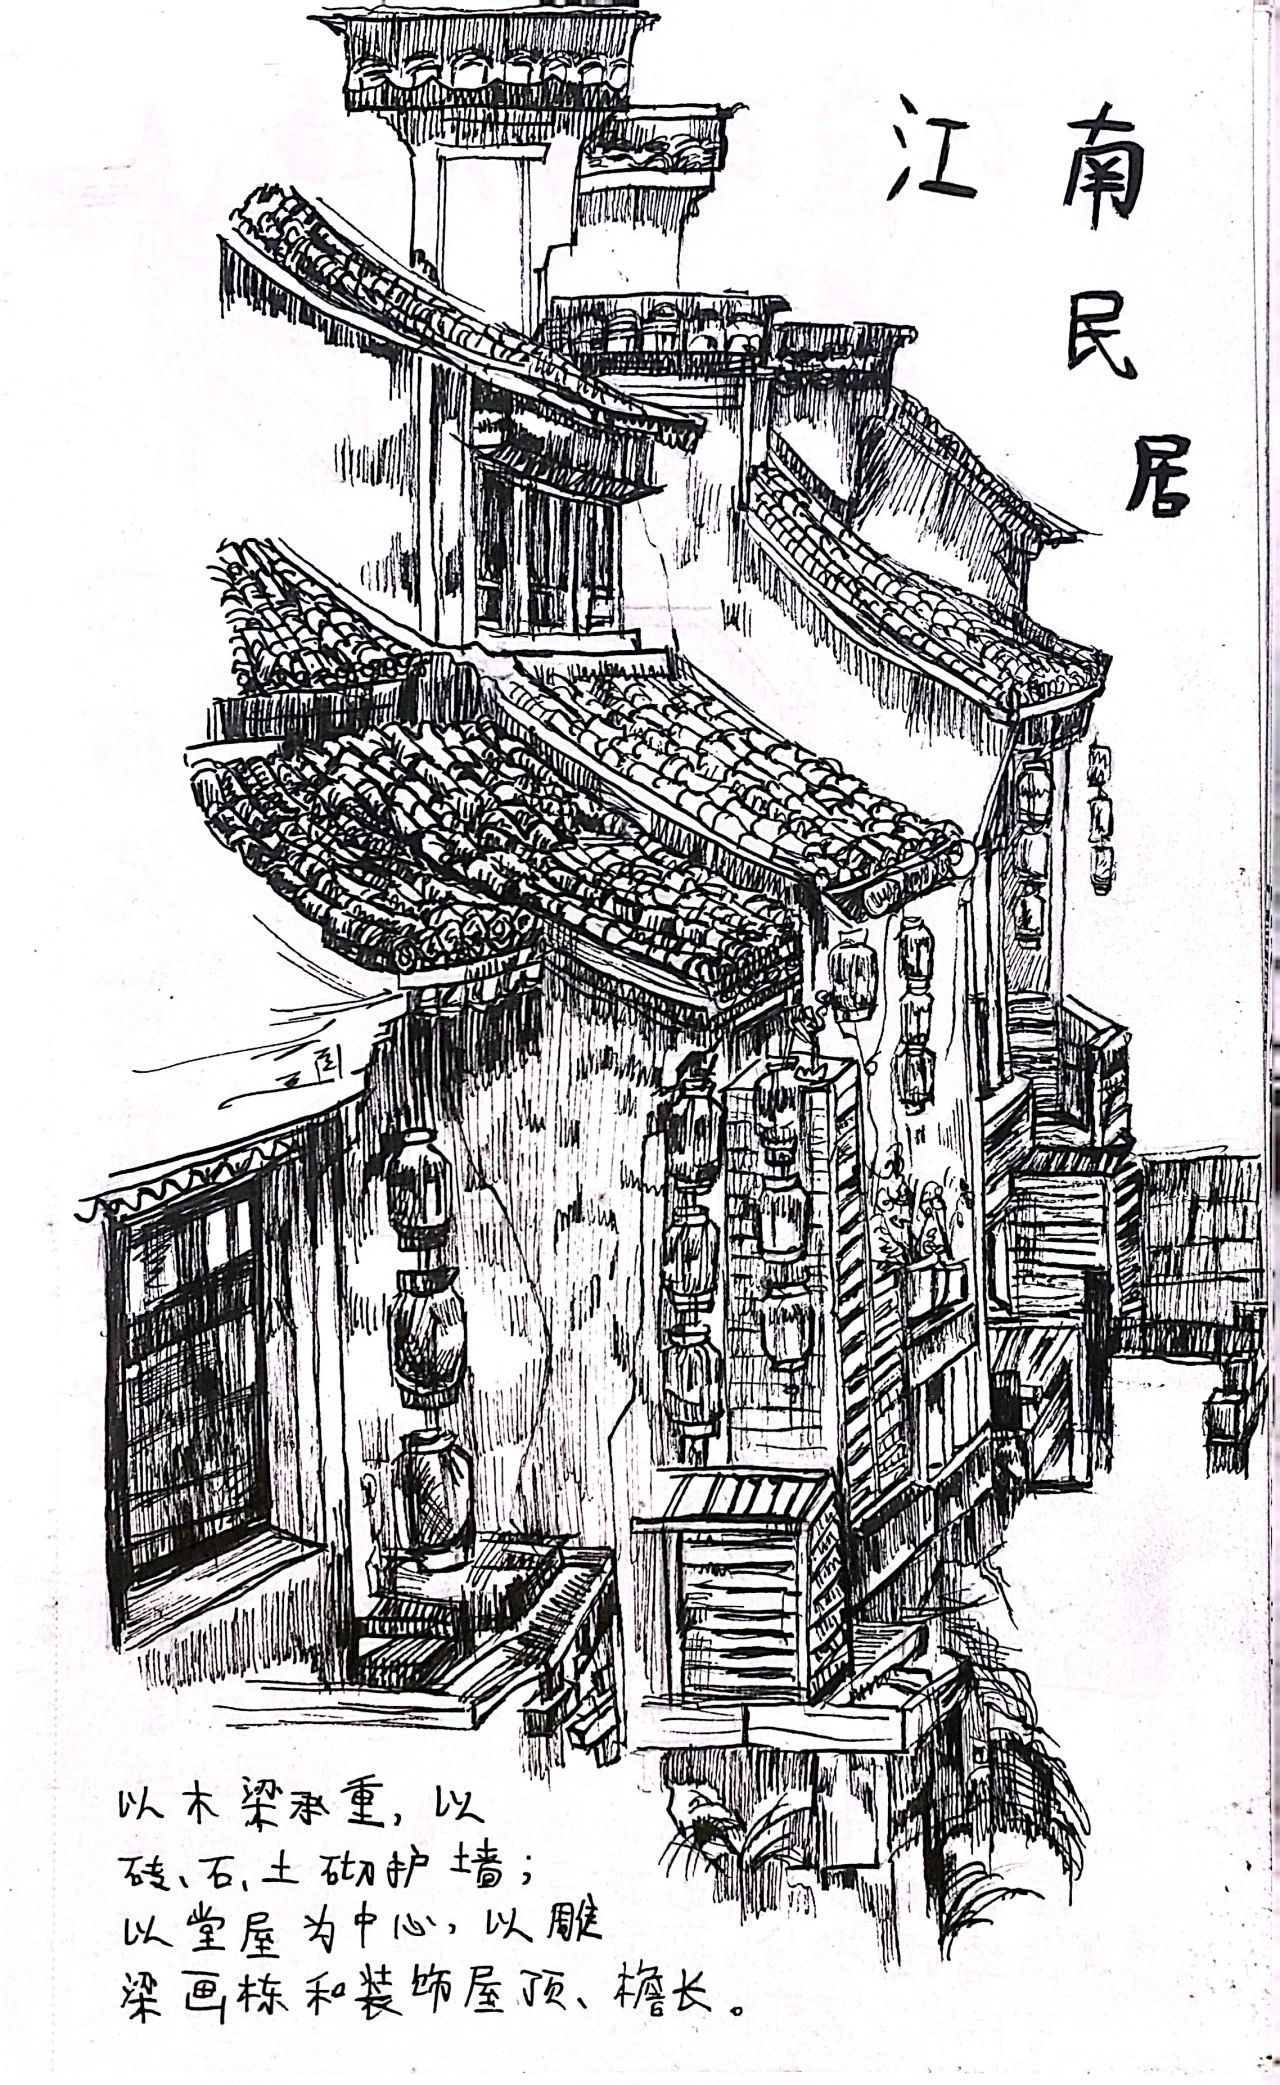 江南
民
居
以木梁承重，以
砖、石、土砌护墙；
以堂屋为中心，以雕
梁画栋和装饰屋顶、檐长。